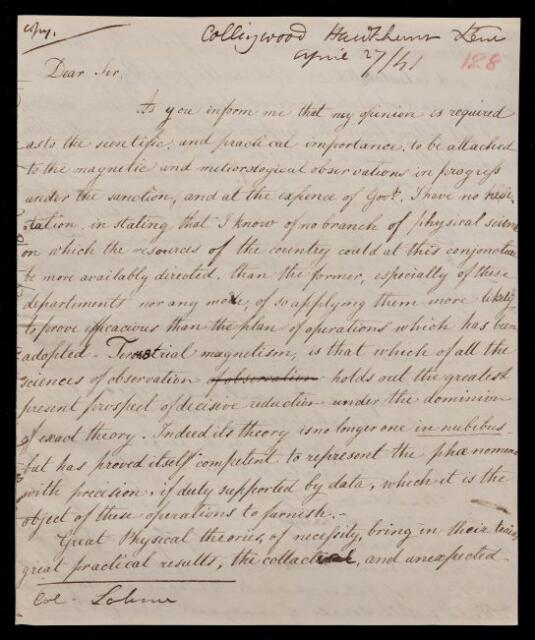 Copy.
Collingwood Hawkhurst Kent
April 27/41
128
Dear Sir,
As you inform me that my opinion is required
as to the scientific, and practical importance, to be attached
to the magnetic and meteorological observations in progress
under the sanction, and at the expense of Govt. I have no hesi-
tation in stating that I know of no branch of physical science
on which the resources of the country could at this conjoncture
be more availably directed, than the former, especially of these
departments nor any mode, of so applying them more likely
to prove efficacious than the plan of operations which has been
adopted - Terrestrial magnetism, is that which of all the
sciences of observation of observation holds out the greatest
present prospect of decisive reduction under the dominion
of exact theory. Indeed its theory is no longer one in nubibus
but has proved itself competent to represent the phænomena
with precision, if duly supported by data, which it is the
object of these operations to furnish. -
Great Physical theories, of necessity, bring in their train,
great practical results, the collateral, and unexpected -
Col - Sabine